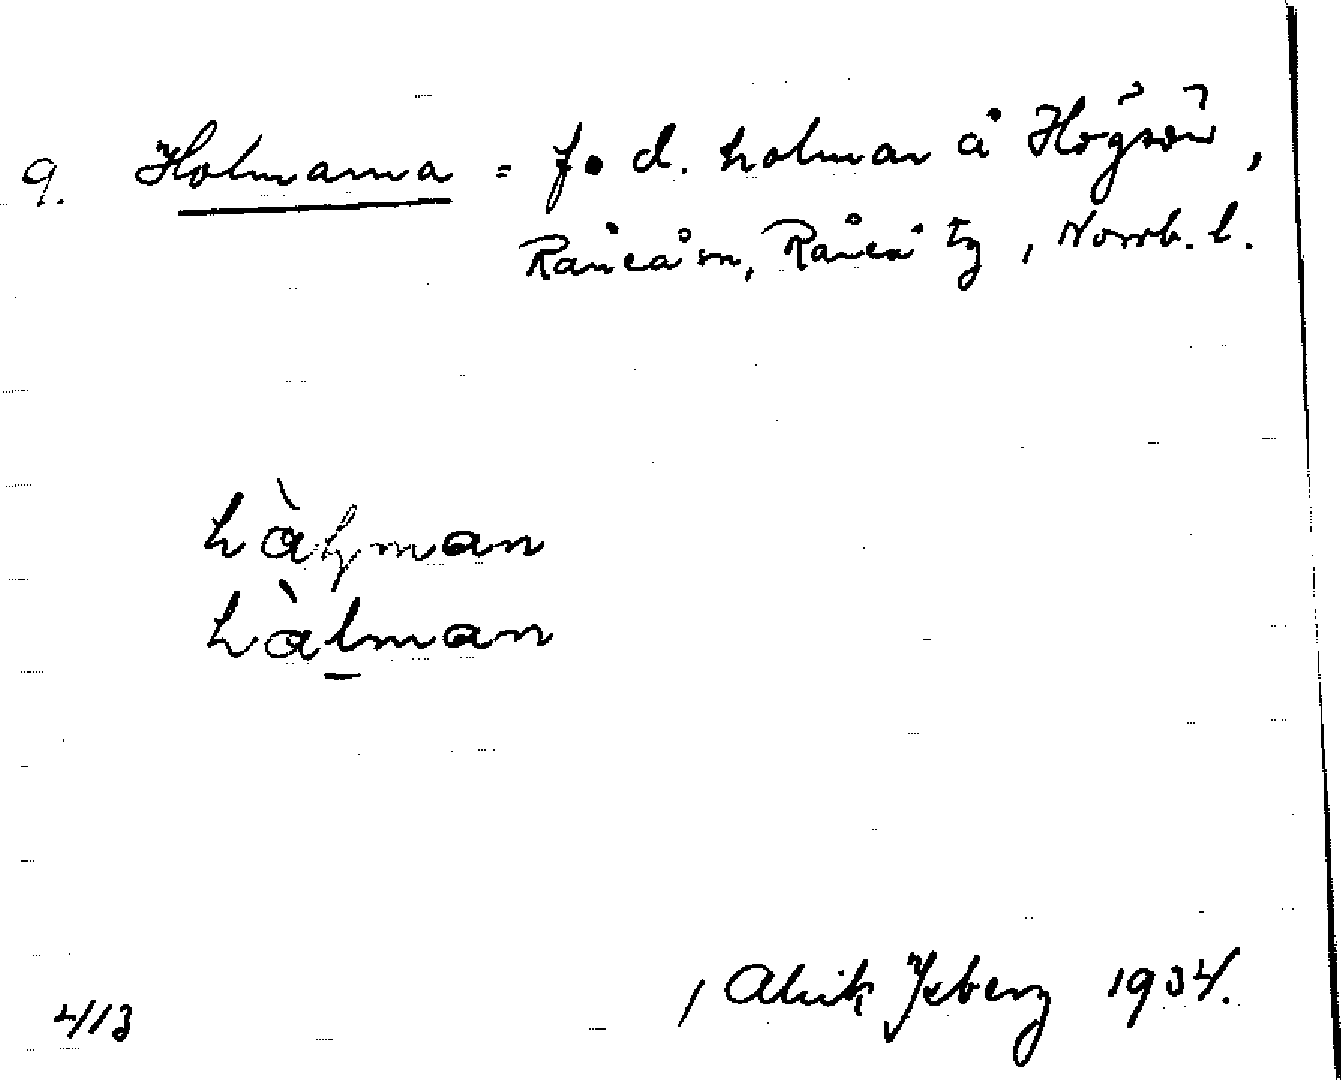 9. Holmarna = f. d. holmar å Högsön,
Råneå sn, Råneå tg, Norrb. l.
hàl̥man
hàl̠man
4/13
, Alrik Isberg 1934.